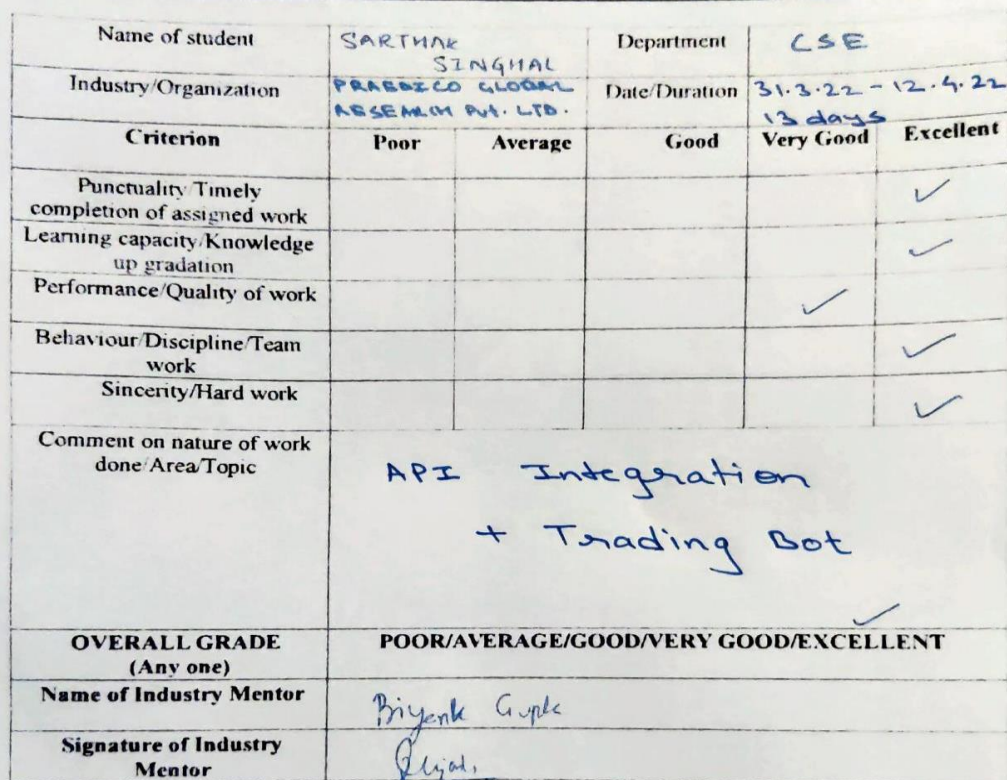 Name of student SARTHAK Department CSE
SINGHAL
Industry/Organization PRABDICO GLOBAL Date/Duration 31.3.22 - 12.4.22
RESEARCH Pvt. LTD. 13 days
Criterion Poor Average Good Very Good Excellent
Punctuality/Timely
completion of assigned work ✓
Learning capacity/Knowledge
up gradation ✓
Performance/Quality of work ✓
Behaviour/Discipline/Team
work ✓
Sincerity/Hard work ✓
Comment on nature of work
done/Area/Topic
API Integration
+ Trading Bot
✓
OVERALL GRADE POOR/AVERAGE/GOOD/VERY GOOD/EXCELLENT
(Any one)
Name of Industry Mentor Gupta
Signature of Industry
Mentor